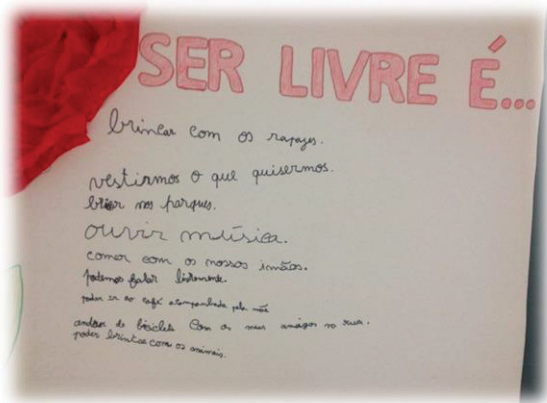 SER LIVRE É...
brincar com os rapazes.
vestirmos o que quisermos.
nos parques.
ouvir música.
comer com os nossos irmãos.
podermos falar livremente.
poder ir ao café acompanhada pela mãe
andar de bicicleta com os meus amigos na rua.
poder brincar com os animais.